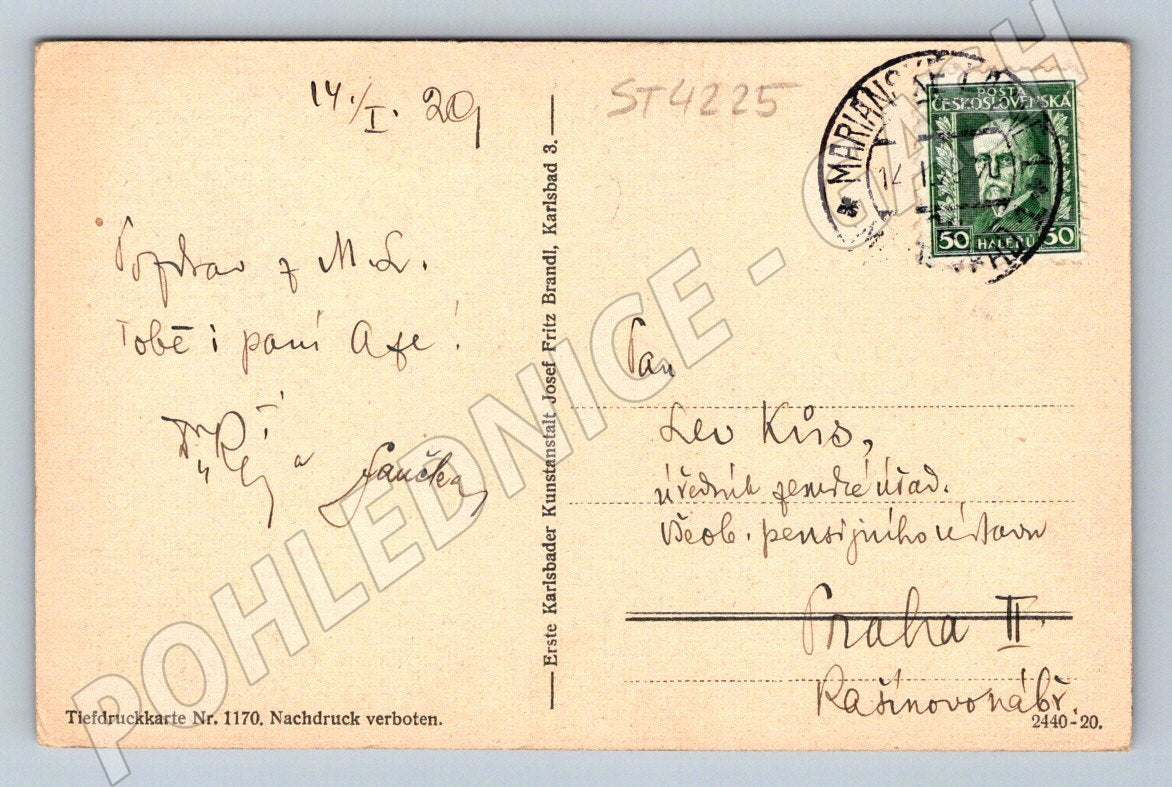 14./I. 29
ST4225
Pozdrav z M. L.
Tobě i paní
Erste Karlsbader Kunstanstalt Josef Fritz Brandl, Karlsbad 3.
POŠTA
ČESKOSLOVENSKÁ
50 HALÉŘŮ 50
* MARIÁNSKÉ LÁZNĚ 1 *
Pan
Lev Kůs,
úředník úřad.
Všeob. pensijního ústavu
Praha II.
Rašínovo nábř.
Tiefdruckkarte Nr. 1170. Nachdruck verboten.
2440-20.
POHLEDNICE - GARAH